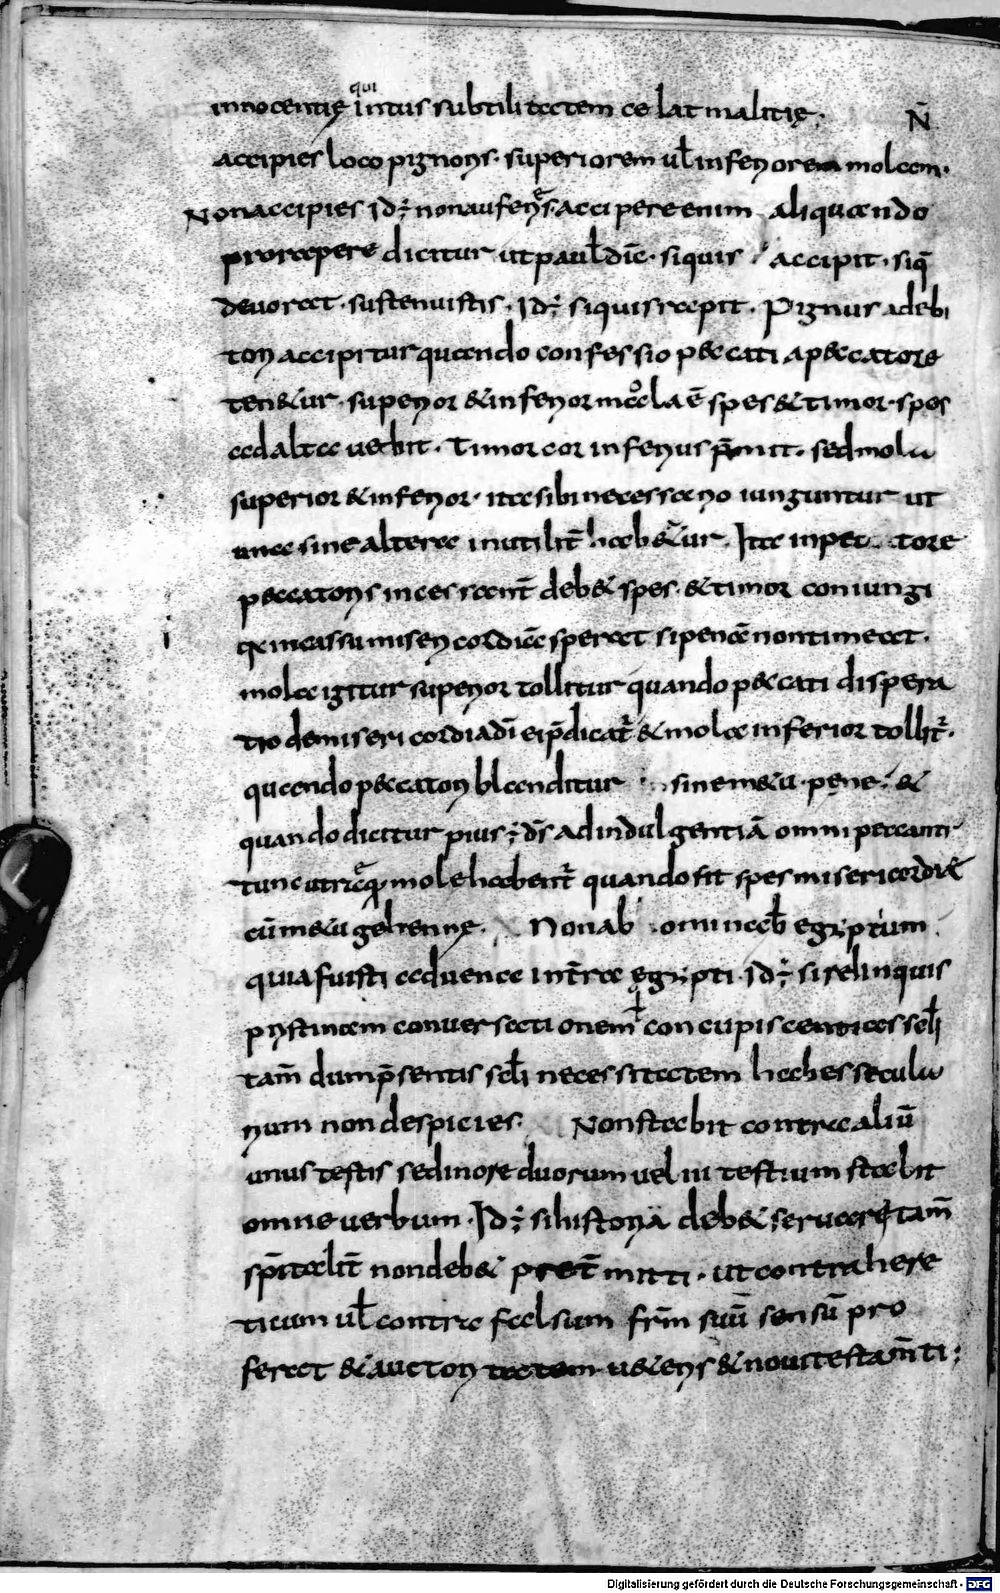 innocentię qui intus subtilitatem celat malitię; N̄
accipies loco pignoris· superiorem ul̄ inferiorem molam·
Non accipies id÷ non auferes· accipere enim aliquando
pro rapere dicitur ut paul̄ dic̄· siquis accipit· siq̄
deuorat· sustenuistis· Id÷ siquis rapit· Pignus a debi
tori accipitur quando confessio peccati a peccatore
ten&ur· superior & inferior mola ē spes & timor· spes
ad alta uehit· Timor cor inferius p̄mit· sed mola
superior & inferior· ita sibi necessario iunguntur ut
una sine altera inutilit̄ hab&ur. Ita in pec tore
peccatoris incessant̄ deb& spes· & timor coniungi
q; incassu misericordiā sperat si penā non timeat·
mola igitur superior tollitur quando peccati dispera
tio de misericordia dī ei p̄dicat̄ & mola inferior tollit̄·
quando peccatori blanditur sine m&u· penę· &
quando dicitur pius÷ ds̄ ad indulgentiā omni peccanti·
tunc utraq; mole habent̄ quando fit spes misericordiæ
cū m&u gehennę· Non ab ominab̄ egyptium
quia fuisti aduena in t̄ra ęgypti· id÷ si relinquis
pristinam conuersationem concupiscentias sc̄li
tam̄ dum p̄sentis sc̄li necessitatem habes secula
rium non despicies· Non stabit contra aliū
unus testis sed in ore duorum uel iii testium stabit
omne uerbum· Id÷ si historia deb& seruare tam̄
sp̄italit̄ non deb& pret̄ mitti· ut contra here
ticum ul̄ contra falsum fr̄m suū sensū pro
ferat & auctoritatem u&eris & noui testam̄ti;
Digitalisierung gefördert durch die Deutsche Forschungsgemeinschaft - DFG